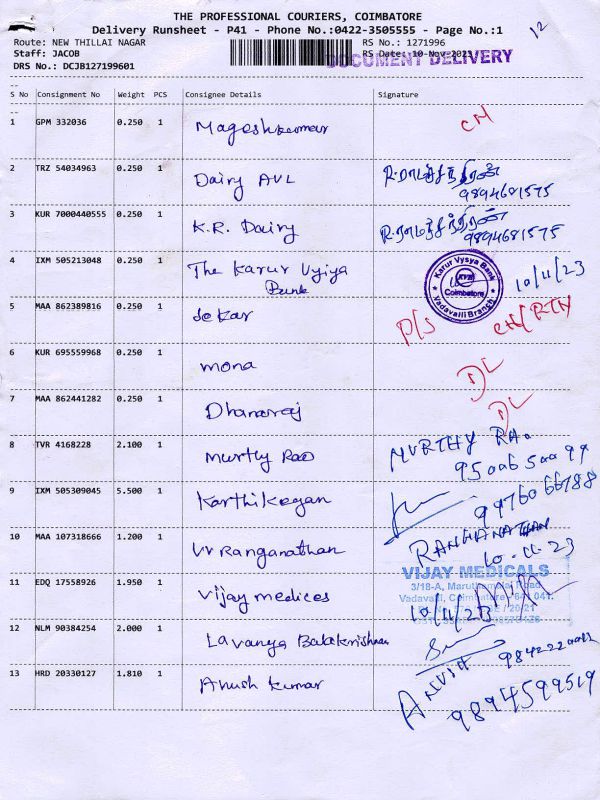 THE PROFESSIONAL COURIERS, COIMBATORE
Delivery Runsheet - P41 - Phone No.:0422-3505555 - Page No.:1
12
Route: NEW THILLAI NAGAR
RS No.: 1271996
Staff: JACOB
RS Date: 10-Nov-2023
DOCUMENT DELIVERY
DRS No.: DCJB127199601
S No Consignment No Weight PCS Consignee Details Signature
1 GPM 332036 0.250 1 Mageshkumar CM
2 TRZ 54034963 0.250 1 Dairy AVL
9894681575
3 KUR 7000440555 0.250 1 K.R. Dairy
9894681575
4 IXM 505213048 0.250 1 The Karur Vyiya
Bank
Karur Vysya Bank
KVB
Coimbatore
Vadavalli Branch
10/11/23
5 MAA 862389816 0.250 1 Sekar P/S CH/RTN
6 KUR 695559968 0.250 1 mona DL
7 MAA 862441282 0.250 1 Dhanaraj DL
8 TVR 4168228 2.100 1 Murthy Rao MURTHY RAO
9500650099
9 IXM 505309045 5.500 1 Karthikeyan
9976066788
10 MAA 107318666 1.200 1 Vr Ranganathan RANGANATHAN
10-11-23
11 EDQ 17558926 1.950 1 Vijay medices
VIJAY MEDICALS
3/18-A,
Vadavalli, Coimbatore - 641 041.
10/11/23
12 NLM 90384254 2.000 1 Lavanya Balakrishnan
13 HRD 20330127 1.810 1 Anush kumar ANUSH
9894599519